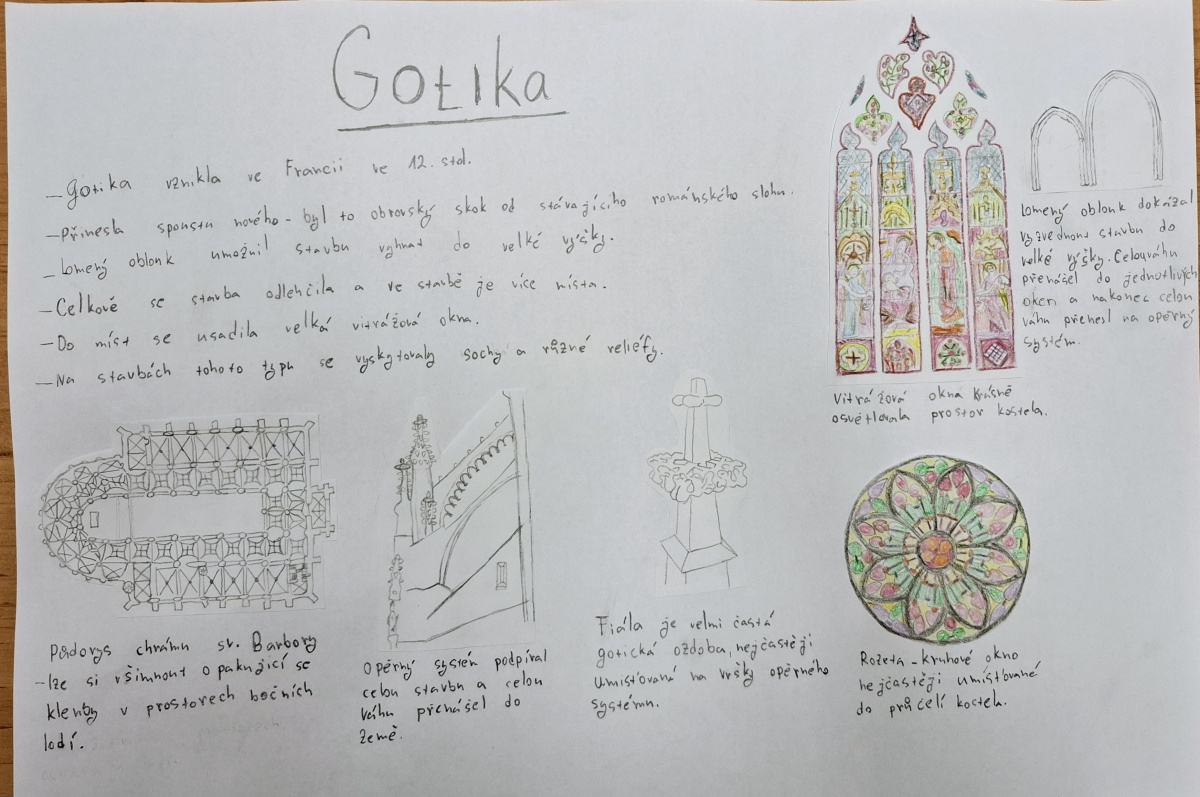 Gotika
- Gotika vznikla ve Francii ve 12. stol.
- Přinesla spoustu nového - byl to obrovský skok od stávajícího románského slohu.
- Lomený oblouk umožnil stavbu vyhnat do velké výšky.
- Celkově se stavba odlehčila a ve stavbě je více místa.
- Do míst se usadila velká vitrážová okna.
- Na stavbách tohoto typu se vyskytovaly sochy a různé reliéfy.
Lomený oblouk dokázal
vyzvednout stavbu do
velké výšky. Celou váhu
přenášel do jednotlivých
oken a nakonec celou
váhu přenesl na opěrný
systém.
Vitrážová okna krásně
osvětlovala prostor kostela.
Půdorys chrámu sv. Barbory
- lze si všimnout opakující se
klenby v prostorech bočních
lodí.
Opěrný systém podpíral
celou stavbu a celou
váhu přenášel do
země.
Fiála je velmi častá
gotická ozdoba, nejčastěji
umisťovaná na vršky opěrného
systému.
Rozeta - kruhové okno
nejčastěji umisťované
do průčelí kostela.